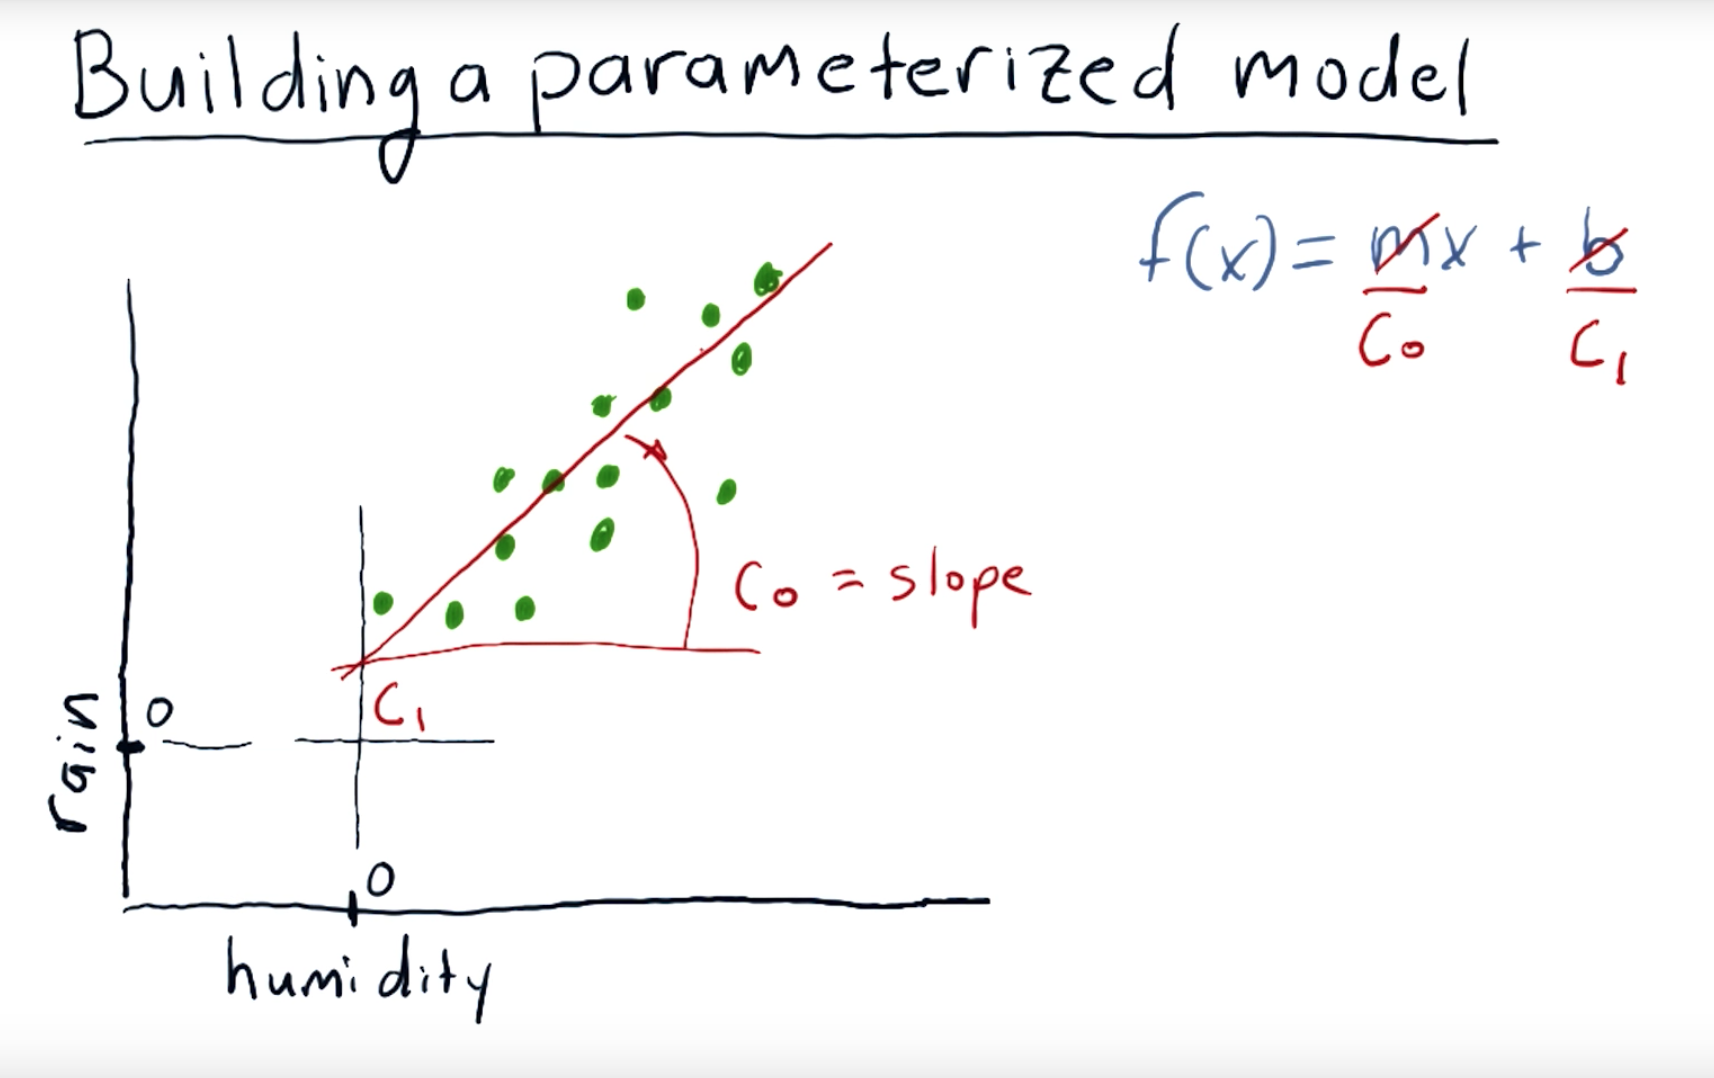 Building a parameterized model
f(x) = mx + b
C₀
C₁
C₀ = slope
C₁
0
rain
0
humidity